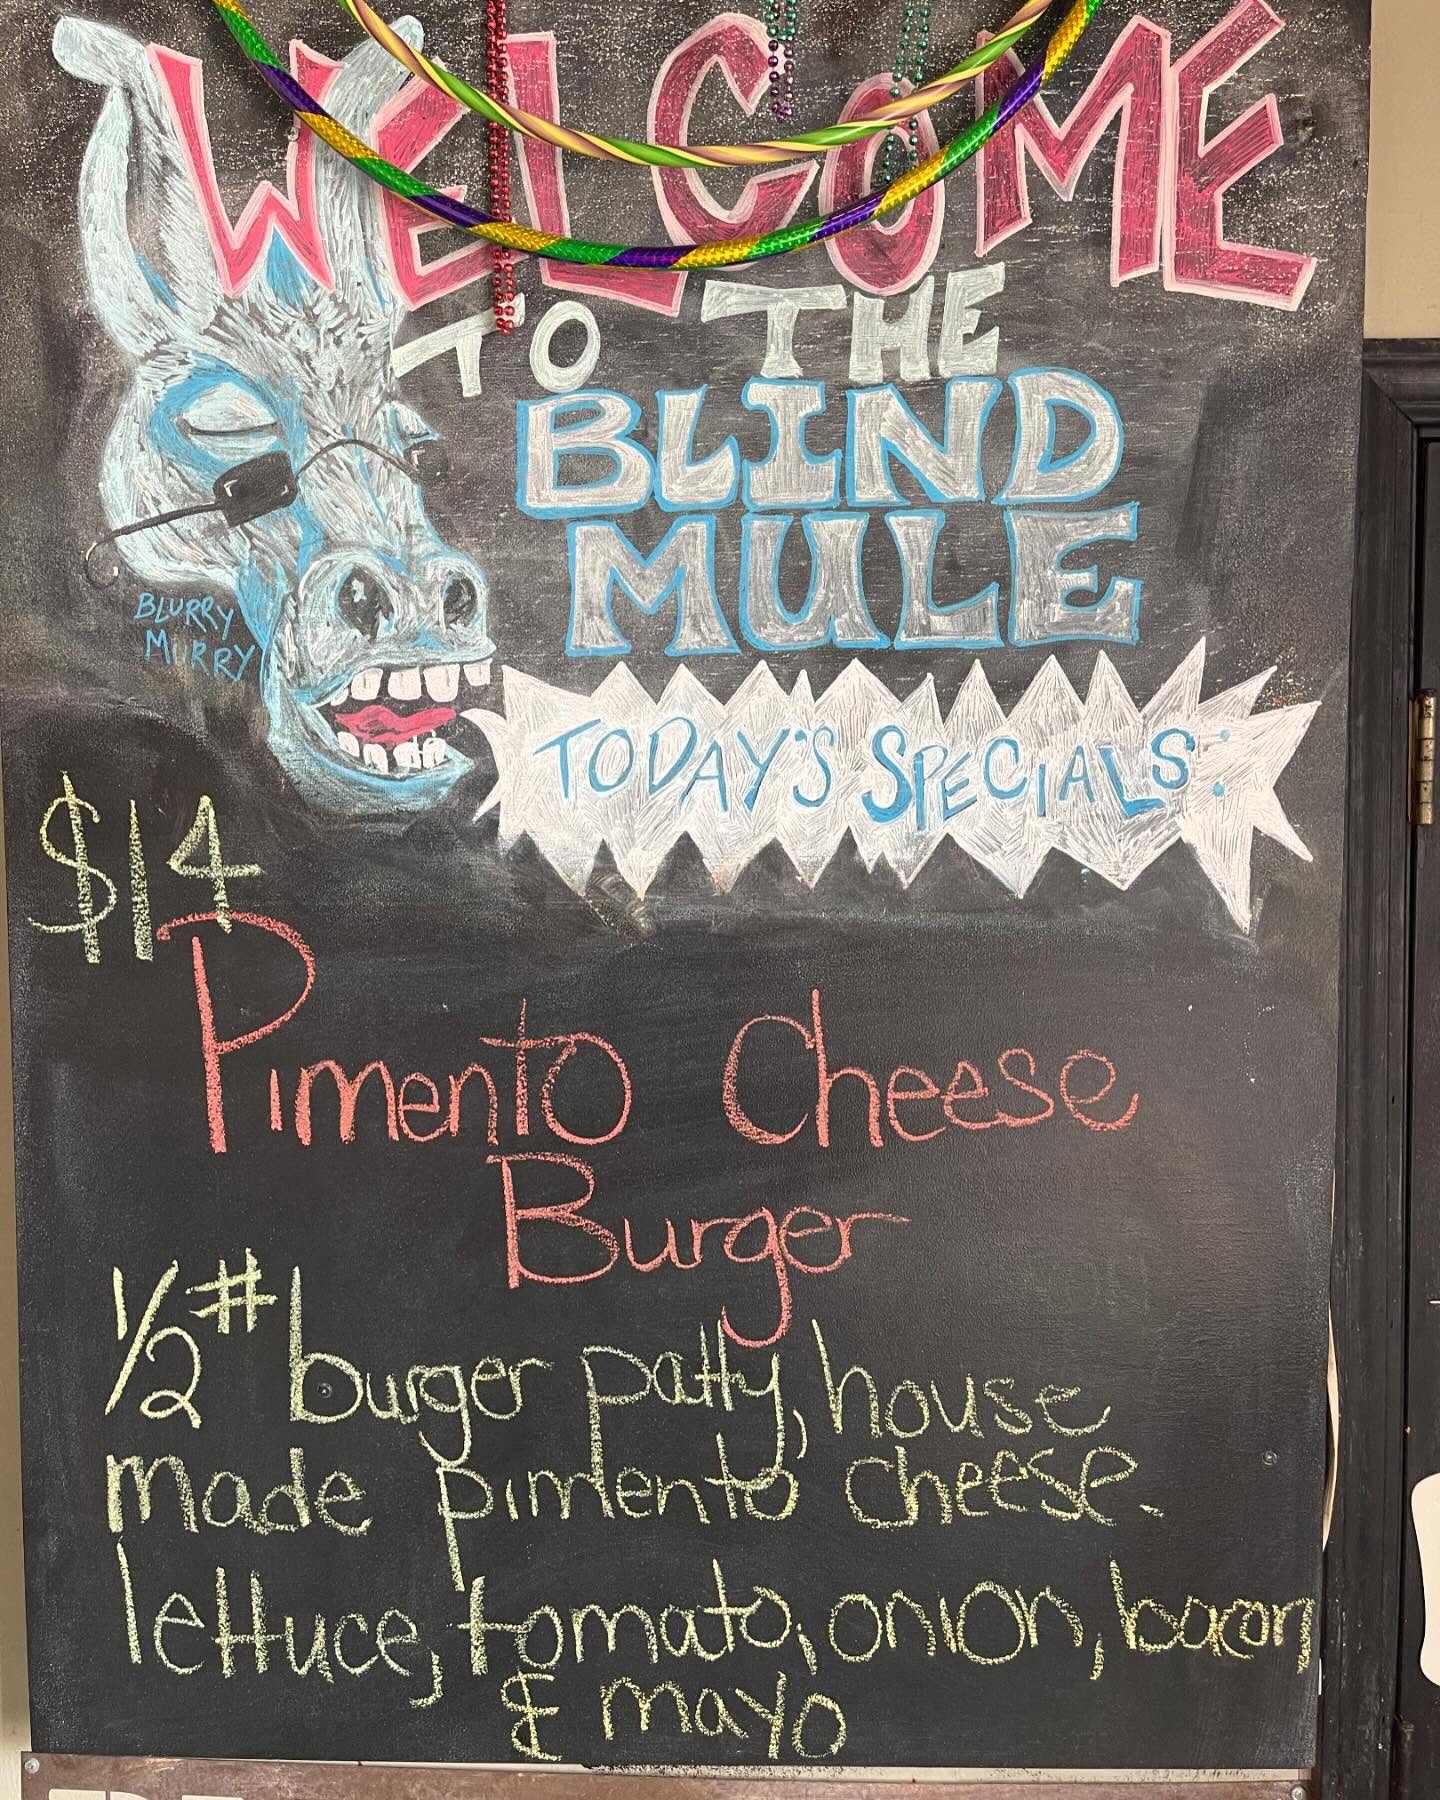 WELCOME
TO THE
BLIND
MULE
BLURRY
MURRY
TODAY'S SPECIALS:
$14
Pimento Cheese
Burger
1/2# burger patty, house
made pimento cheese.
lettuce, tomato, onion, bacon
& mayo